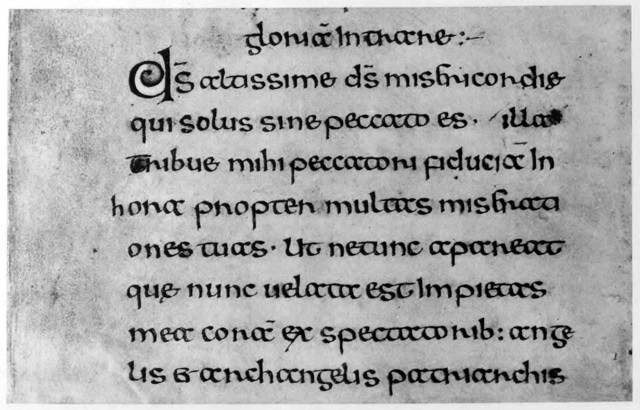 gloriā Intrare:-
D̄s altissime d̄s misericordie
qui solus sine peccato es. illa
tribue mihi peccatori fiduciā In
hora propter multas miserati
ones tuas. Ut netunc apareat
quę nunc uelata est Impietas
mea corā ex spectatorib: ange
lis & archangelis patriarchis